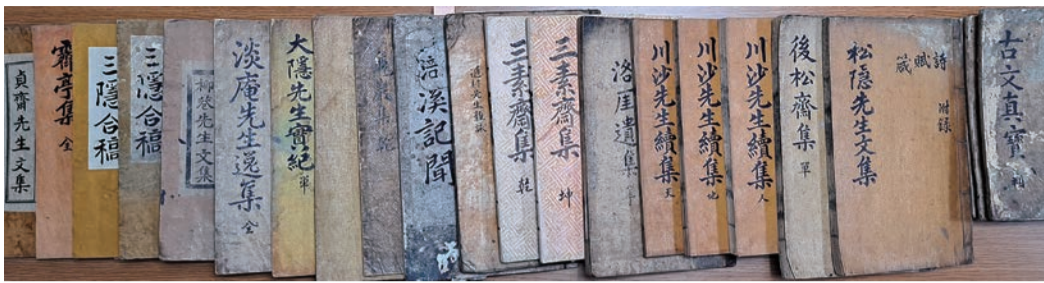 貞齋先生文集
霽亭集 全
三隱合稿
三隱合稿
柳裝先生文集
淡庵先生逸集 全
大隱先生實紀 單
巖集 乾
涪溪記聞
先生
三素齋集 乾
三素齋集 坤
洛厓遺集
川沙先生續集 天
川沙先生續集 地
川沙先生續集 人
後松齋集 單
松隱先生文集
詩賦箴
附錄
古文真寶